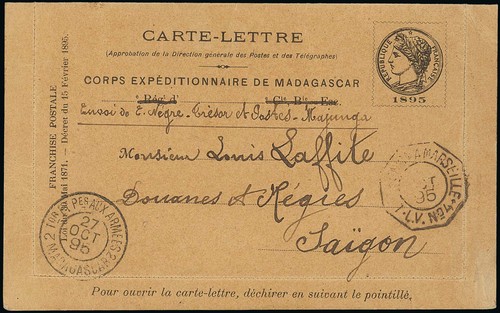 CARTE-LETTRE
(Approbation de la Direction générale des Postes et des Télégraphes)
CORPS EXPÉDITIONNAIRE DE MADAGASCAR
RÉPUBLIQUE FRANÇAISE
1895
Rég' d' Cie, Bie, Esc.
Envoi de E. Nègre - Trésor et Postes - Majunga
Monsieur Louis Laffite
Douanes et Régies
Saïgon
FRANCHISE POSTALE
Loi du 30 Mai 1871. — Décret du 15 Février 1895.
2 TOR ET PES AUX ARMÉES 2
27
OCT
95
MADAGASCAR
A MARSEILLE
95
L.V. Nº4
Pour ouvrir la carte-lettre, déchirer en suivant le pointillé.